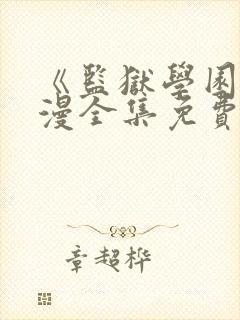 《監獄學園
漫全集免費
章超桦